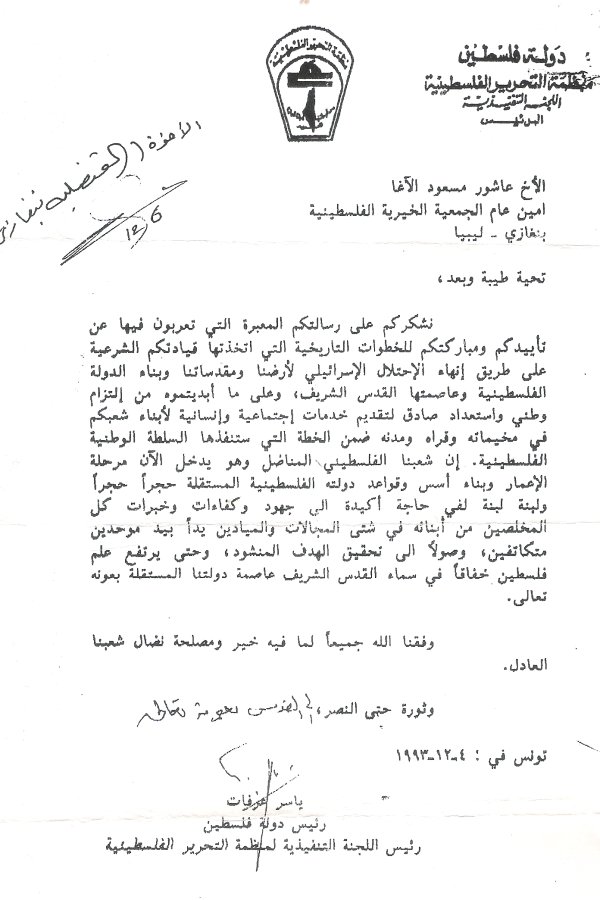 دولة فلسطين
منظمة التحرير الفلسطينية
اللجنة التنفيذية
الرئيس
منظمة التحرير الفلسطينية
الأخوة / القنصلية بنغازي
12/6
الأخ عاشور مسعود الآغا
امين عام الجمعية الخيرية الفلسطينية
بنغازي - ليبيا
تحية طيبة وبعد،
نشكركم على رسالتكم المعبرة التي تعربون فيها عن
تأييدكم ومباركتكم للخطوات التاريخية التي اتخذتها قيادتكم الشرعية
على طريق إنهاء الإحتلال الإسرائيلي لأرضنا ومقدساتنا وبناء الدولة
الفلسطينية وعاصمتها القدس الشريف، وعلى ما أبديتموه من إلتزام
وطني واستعداد صادق لتقديم خدمات إجتماعية وإنسانية لأبناء شعبكم
في مخيماته وقراه ومدنه ضمن الخطة التي ستنفذها السلطة الوطنية
الفلسطينية. إن شعبنا الفلسطيني المناضل وهو يدخل الآن مرحلة
الإعمار وبناء أسس وقواعد دولته الفلسطينية المستقلة حجراً حجراً
ولبنة لبنة لفي حاجة أكيدة الى جهود وكفاءات وخبرات كل
المخلصين من أبنائه في شتى المجالات والميادين يداً بيد موحدين
متكاتفين، وصولاً الى تحقيق الهدف المنشود، وحتى يرتفع علم
فلسطين خفاقاً في سماء القدس الشريف عاصمة دولتنا المستقلة بعونه
تعالى.
وفقنا الله جميعاً لما فيه خير ومصلحة نضال شعبنا
العادل.
وثورة حتى النصر، الى القدس
تونس في : ٤-١٢-١٩٩٣
ياسر عرفات
رئيس دولة فلسطين
رئيس اللجنة التنفيذية لمنظمة التحرير الفلسطينية